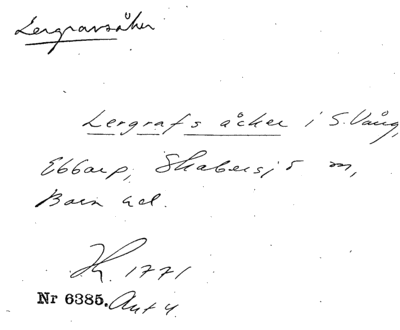 Lergravsåker
Lergrafs åcker i S. Vång,
Ebbarp, Skabersjö sn,
Bara hd.
H. 1771
Nr 6385. Akt 4.